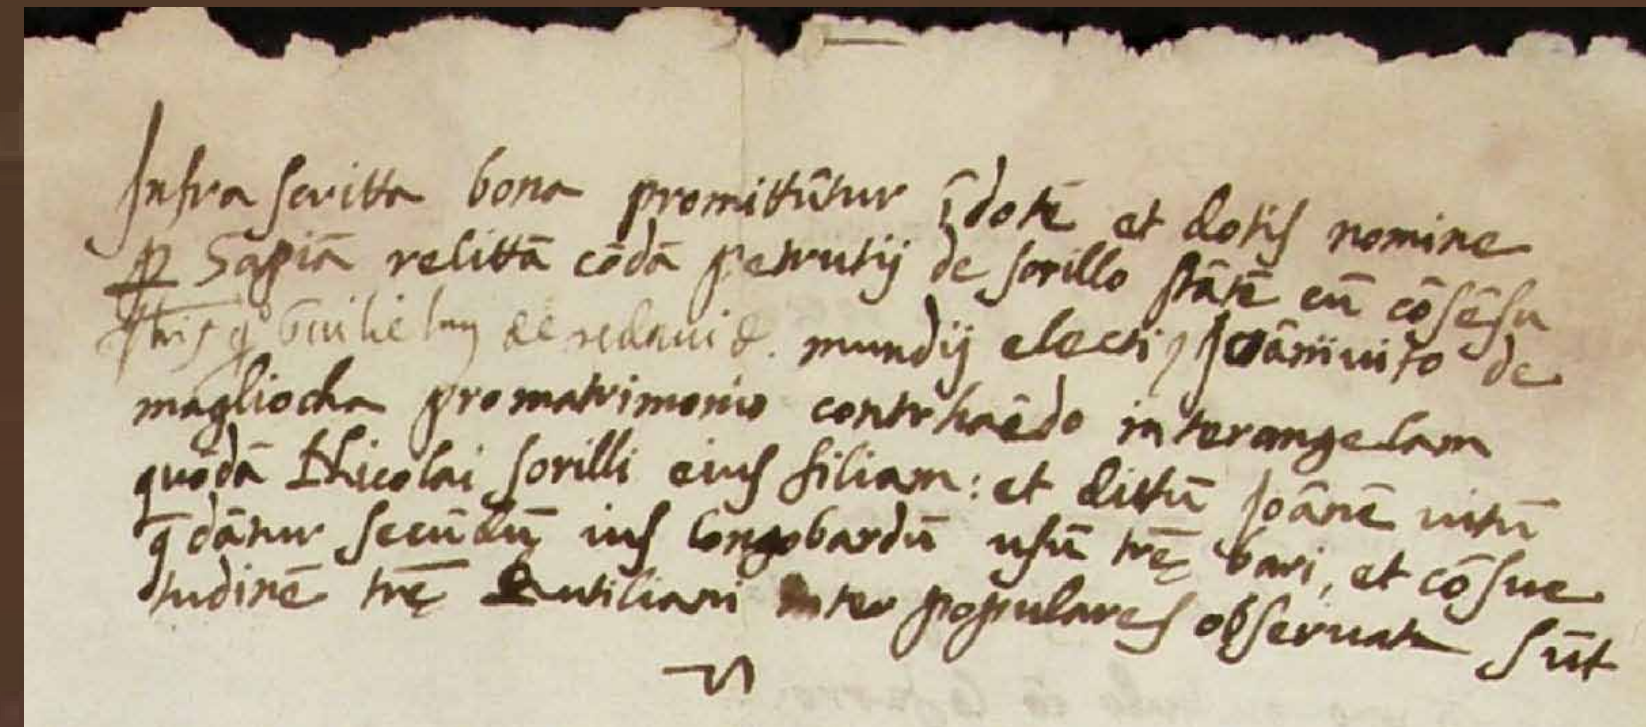 Infra scritta bona promittūtur ī dotē et dotis nomine
p Sapiā relittā cōdā petrutij de sorillo stātē cū cōsēsu
mundij electi, Joānivito de
magliocha pro matrimonio contrhaēdo inter angelam
quōdā Nicolai sorilli eius filiam: et dittū Joānē vitū
q̄ dātur secūdū ius longobardū usū trę bari, et cōsue
tudinē trę Rutiliani inter populares observata sūt